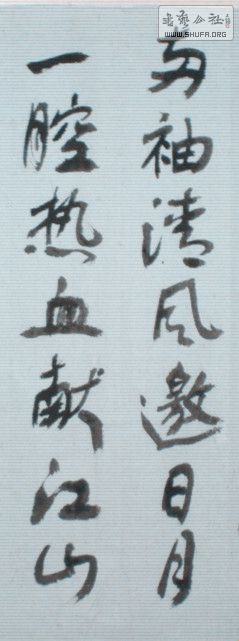 两袖清风邀日月
一腔热血献江山
书艺公社
WWW.SHUFA.ORG